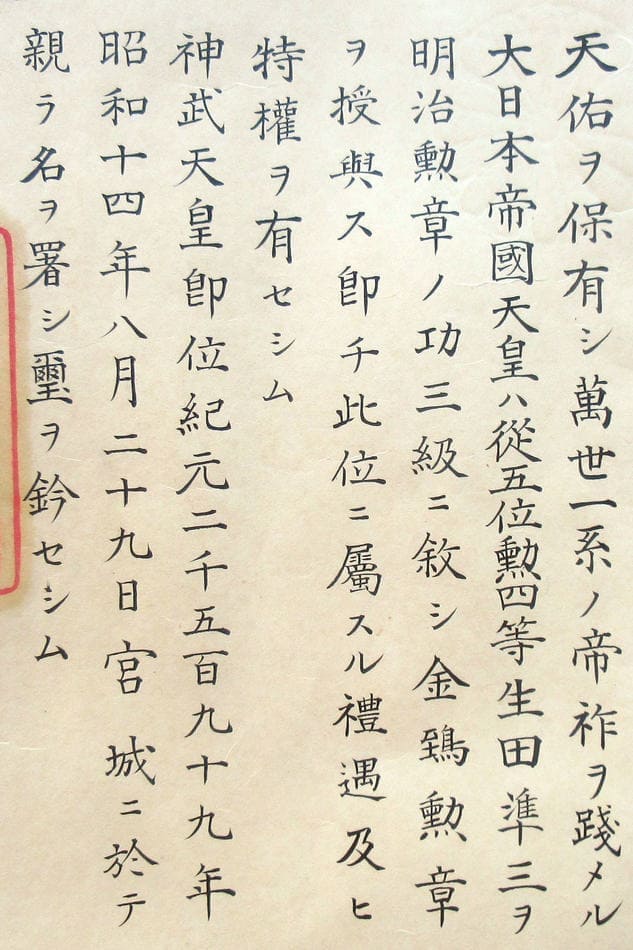 天佑ヲ保有シ萬世一系ノ帝祚ヲ踐メル
大日本帝國天皇ハ從五位勲四等生田準三ヲ
明治勲章ノ功三級ニ敘シ金鵄勲章
ヲ授與ス卽チ此位ニ屬スル禮遇及ヒ
特權ヲ有セシム
神武天皇卽位紀元二千五百九十九年
昭和十四年八月二十九日宮城ニ於テ
親ラ名ヲ署シ璽ヲ鈐セシム